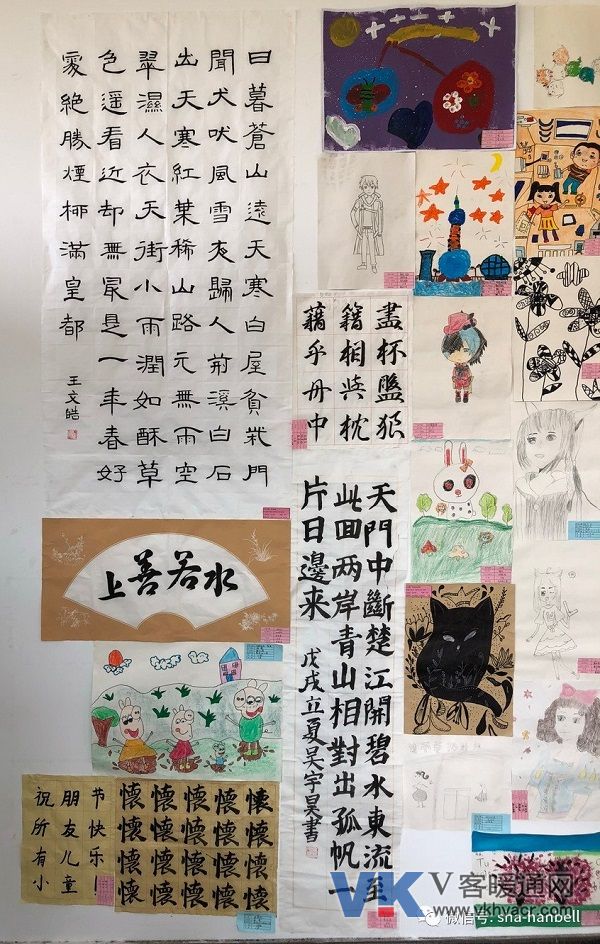 日暮蒼山遠天寒白屋貧柴門
聞犬吠風雪夜歸人荊溪白石
出天寒紅葉稀山路元無雨空
翠濕人衣天街小雨潤如酥草
色遥看近却無最是一年春好
處絶勝煙柳滿皇都
王文皓
盡杯盤狼
籍相與枕
藉乎舟中
上善若水
天門中斷楚江開碧水東流至
此回兩岸青山相對出孤帆一
片日邊來
戊戌立夏吴宇昊書
祝所有小
朋友儿童
节快乐！
懷懷懷懷懷
懷懷懷懷懷
懷懷懷懷懷
懷懷懷懷懷
VK V客暖通网
www.vkhvacr.com
微信号: sha-hanbell